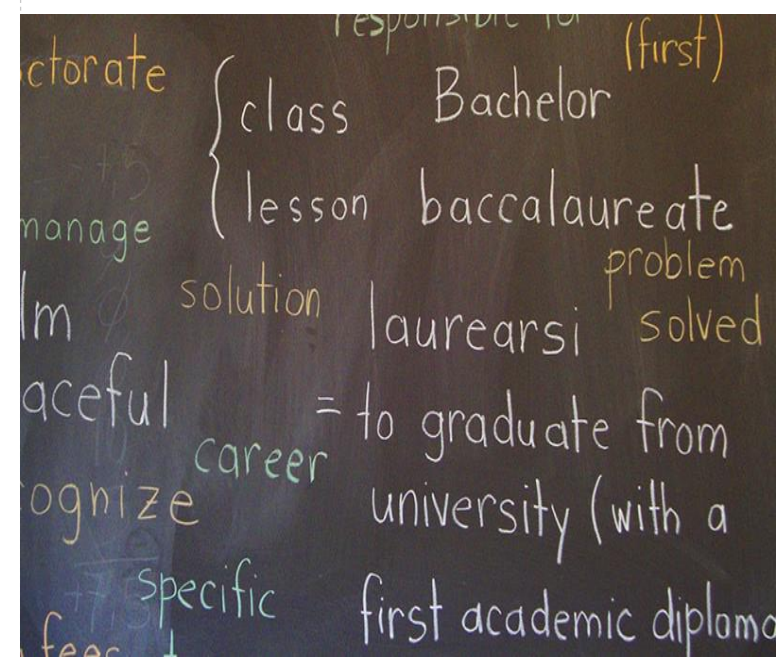 responsible for
(first)
ctorate
class Bachelor
lesson baccalaureate
manage
problem
solution
laurearsi
solved
lm
aceful
= to graduate from
career
ognize
university (with a
specific
first academic diploma
fees